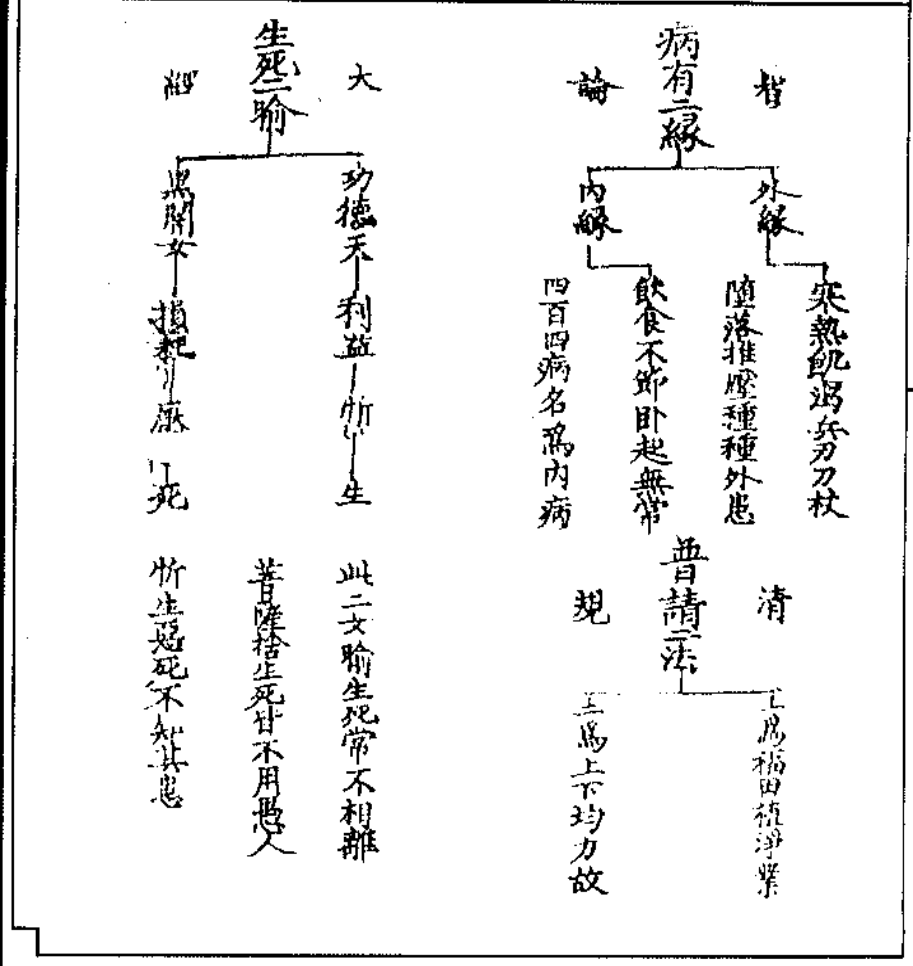 智
論
病有二縁
外縁
寒熱飢渴兵刃刀杖
墮落推壓種種外患
内縁
飲食不節卧起無常
四百四病名為内病
清
規
普請二法
為福田植淨業
為上下均力故
大
經
生死二喻
功德天
利益
忻
生
此二女喻生死常不相離
菩薩捨生死皆不用愚人
黑闇女
損耗
厭
死
忻生惡死不知其患